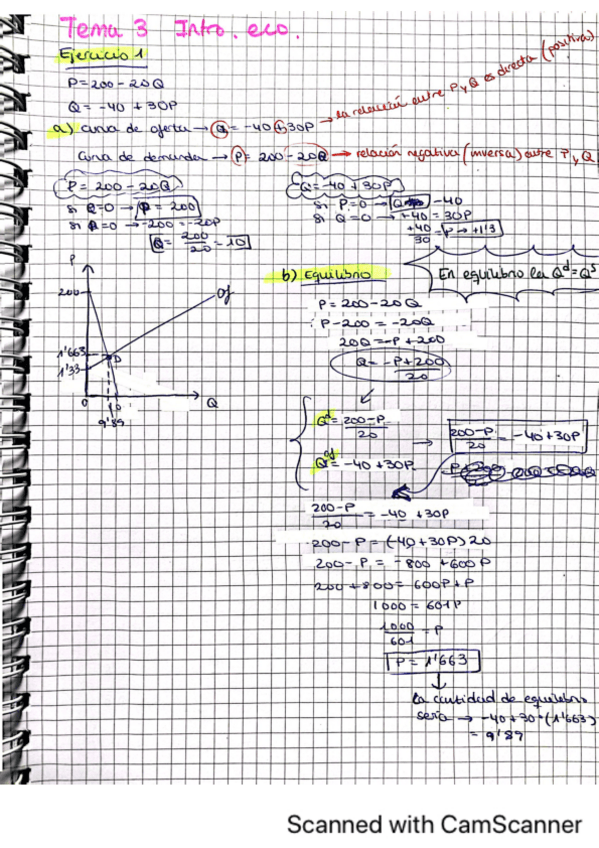 Tema 3 Intro. eco.
Ejercicio 1
P=200-20Q
Q=-40+30P
a) curva de oferta → Q=-40+30P → la relación entre P y Q es directa (positiva)
Curva de demanda → P=200-20Q → relación negativa (inversa) entre P y Q
P=200-20Q
si Q=0 → P=200
→ -200=-20P
Q=200/20=10
Q=-40+30P
si P=0 → Q -40
si Q=0 → +40=30P
+40/30=P → +1'3
P
200
1'663
1'33
0
10
9'89
Q
Of
D
b) Equilibrio
En equilibro la Qd=Qs
P=200-20Q
P-200=-20Q
20Q=-P+200
Q=-P+200/20
Qd=200-P/20
Qof=-40+30P
→ 200-P/20=-40+30P
200-P/20=-40+30P
200-P=(-40+30P)20
200-P=-800+600P
200+800=600P+P
1000=601P
1000/601=P
P=1'663
la cantidad de equilibrio
sería → -40+30·(1'663)
=9'89
Scanned with CamScanner